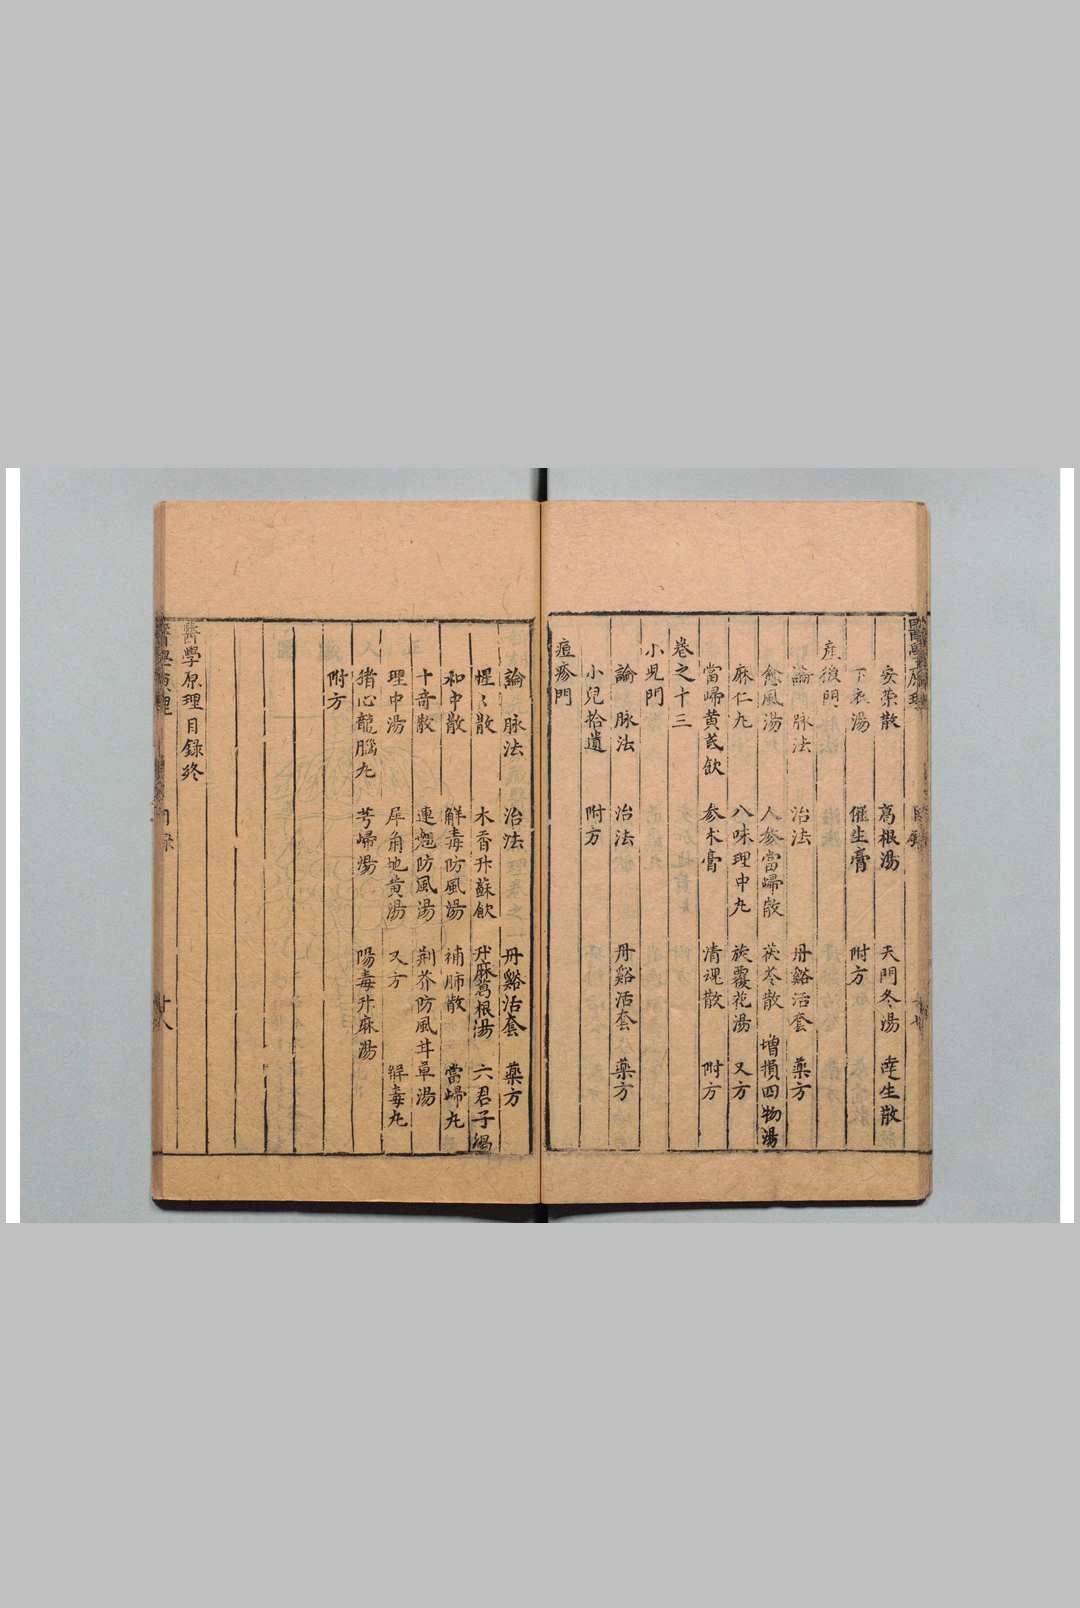 安榮散　葛根湯　天門冬湯　僥生散
下衣湯　催生膏　附方
産後門
論　脉法　治法　丹谿活套　藥方
愈風湯　人參當歸散　茯苓散　增損四物湯
麻仁丸　八味理中丸　旋覆花湯　又方
當歸黄芪飲　參术膏　清魂散　附方
卷之十三
小児門
論　脉法　治法　丹谿活套　藥方
小兒拾遺　附方
痘疹門
論　脉法　治法　丹谿活套　藥方
惺〻散　木香升蘇飲　升麻葛根湯　六君子湯
和中散　解毒防風湯　補肺散　當歸丸
十奇散　連翹防風湯　荆芥防風甘草湯
理中湯　犀角地黄湯　又方　解毒丸
猪心龍腦丸　芎歸湯　陽毒升麻湯
附方
醫學原理目錄終
醫學原理　目錄　廿八